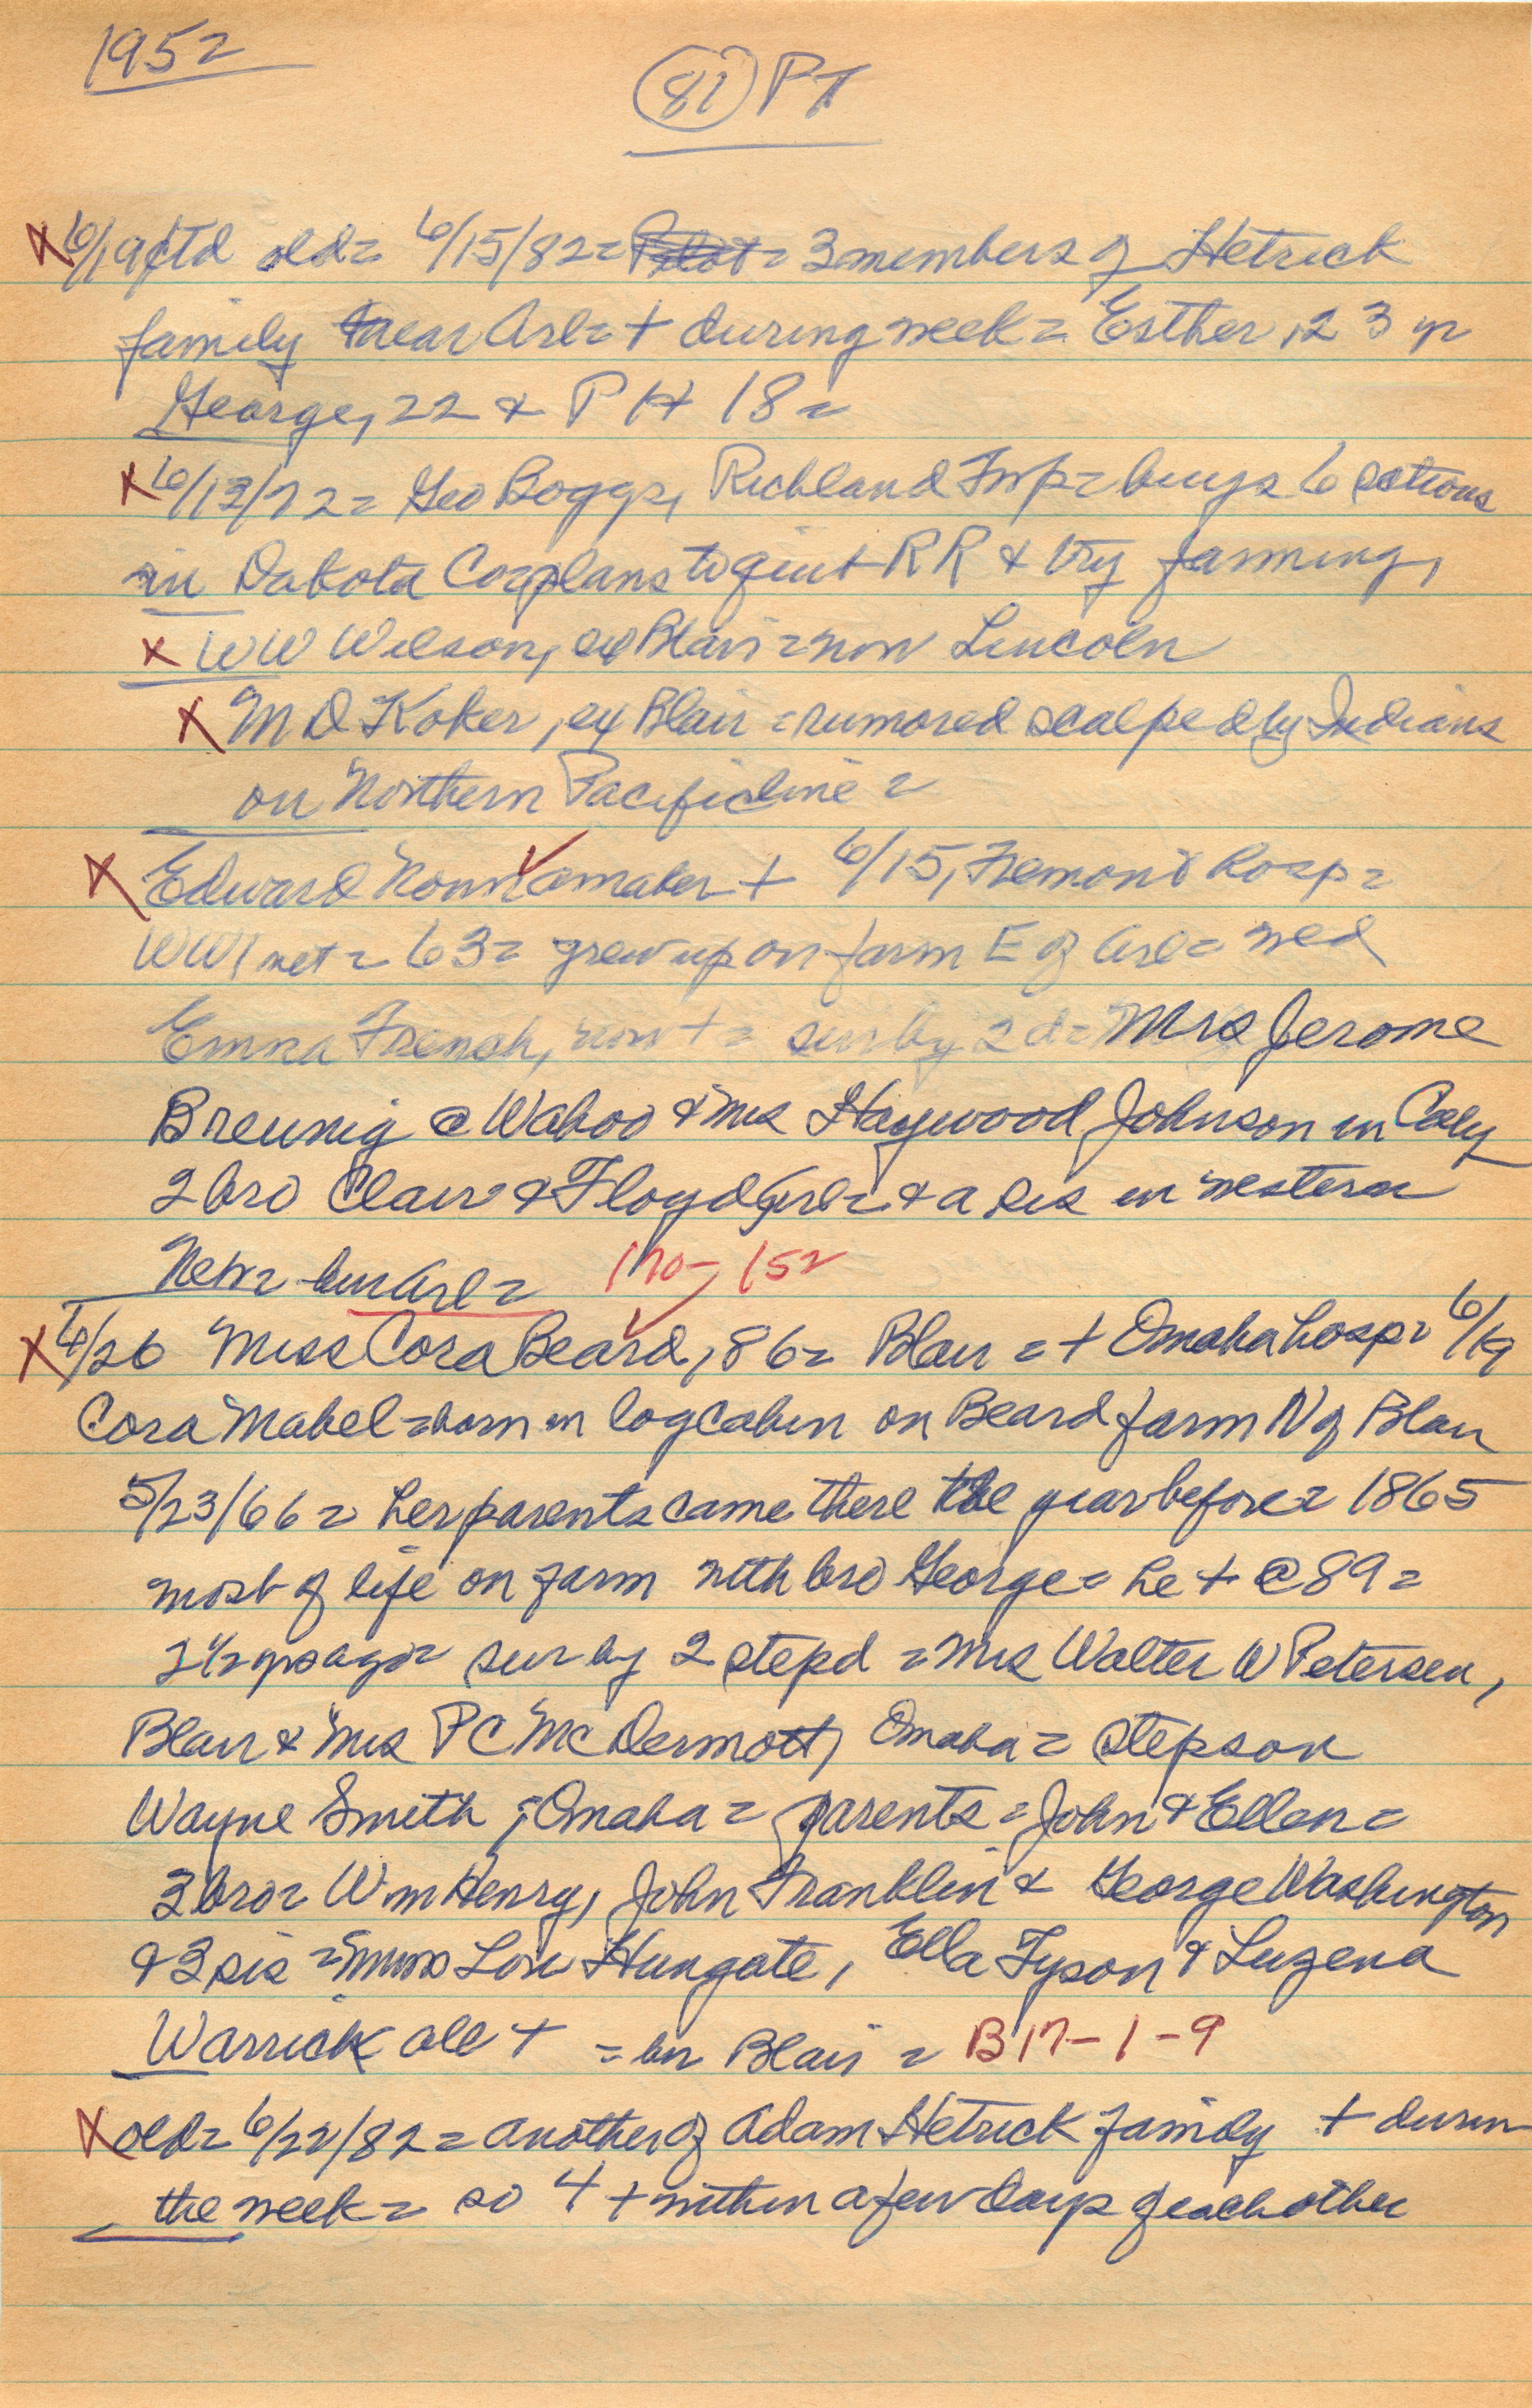 1952
81 PT
X 6/19 ctd old= 6/15/82= 3 members of Hetrick
family near Arl= + during week= Esther, 23 yr
George, 22 & P H 18=
X 6/13/72= Geo Boggs, Richland Twp= buys 6 sections
in Dakota Co= plans to quit RR & try farming,
X W W Wilson, ex Blair = now Lincoln
X M D Koker, ex Blair = rumored scalped by Indians
on Northern Pacific line =
X Edward + 6/15, Fremont hosp=
WW1 vet= 63= grew up on farm E of Arl= wed
Emma French, now += sur by 2 d= Mrs Jerome
Breunig @ Wahoo & Mrs Haywood Johnson in
2 bro Clair & Floyd Arl= & a sis in western
Neb= bur Arl= 170-152
X 6/26 Miss Cora Beard, 86= Blair = + Omaha hosp= 6/19
Cora Mabel= born in log cabin on Beard farm N of Blair
5/23/66= her parents came there the year before= 1865
most of life on farm with bro George= he + @ 89=
2 1/2 yrs ago= sur by 2 stepd = Mrs Walter W Petersen,
Blair & Mrs P C McDermott, Omaha= stepson
Wayne Smith, Omaha= parents= John & Ellen=
3 bro= Wm Henry, John Franklin & George Washington
& 3 sis = Mmes Lou Hungate, Ella Tyson & Luzena
Warrick all + = bur Blair = B17-1-9
X old= 6/22/82= another of Adam Hetrick family + durin
the week= so 4 + within a few days of each other